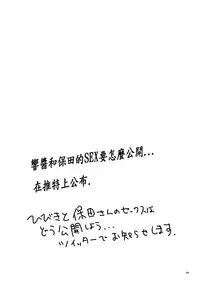 響醬和保田的SEX要怎麼公開...
在推特上公布.
ひびきと保田さんのセックスは
どう公開しよう...
ツイッターでお知らせします.